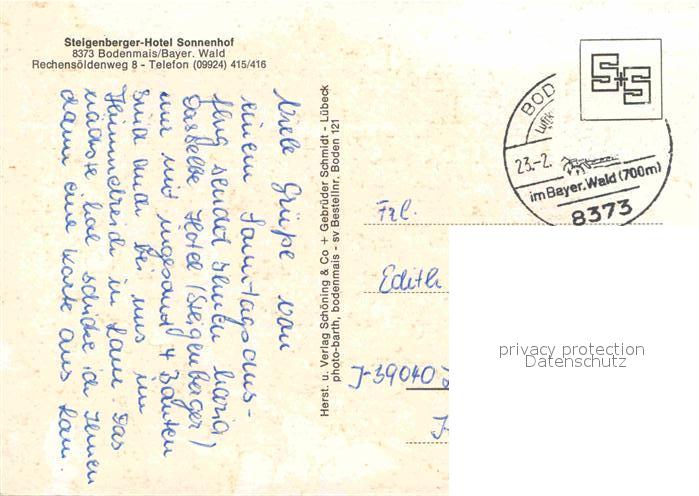 Steigenberger-Hotel Sonnenhof
8373 Bodenmais/Bayer. Wald
Rechensöldenweg 8 - Telefon (09924) 415/416
Viele Grüße von
einem Sonntagsaus-
flug sendet Ihnen Maria
Dasselbe Hotel (Steigenberger)
nur mit insgesamt 4 Bauten
sind auch bei uns im
in Lam. Das
nächste Mal schicke ich Ihnen
dann eine Karte aus Lam.
Herst. u. Verlag Schöning & Co + Gebrüder Schmidt - Lübeck
photo-barth, bodenmais - sv Bestellnr. Boden 121
S+S
BOD
Luftk
23.-2.
im Bayer. Wald (700m)
8373
Frl.
Edith
I-39040
privacy protection
Datenschutz